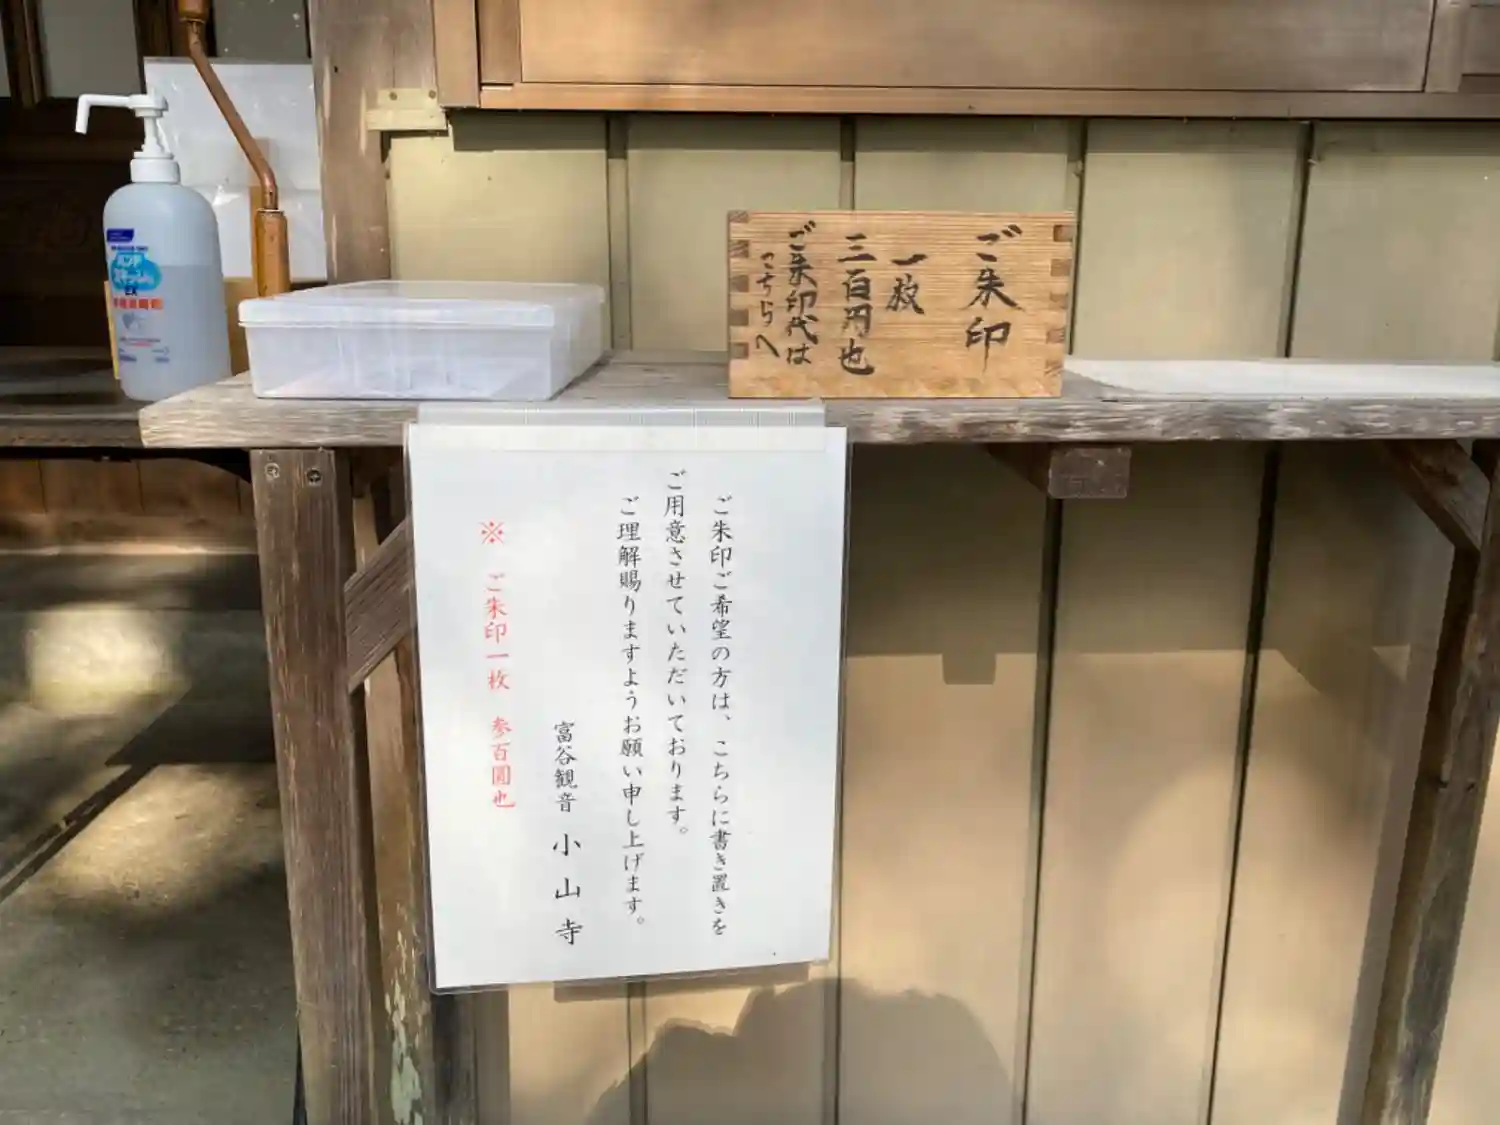 ご朱印
一枚
三百円也
ご朱印代は
こちらへ
ご朱印ご希望の方は、こちらに書き置きを
ご用意させていただいております。
ご理解賜りますようお願い申し上げます。
富谷観音 小山寺
※ ご朱印一枚 参百圓也
ハンド
EX